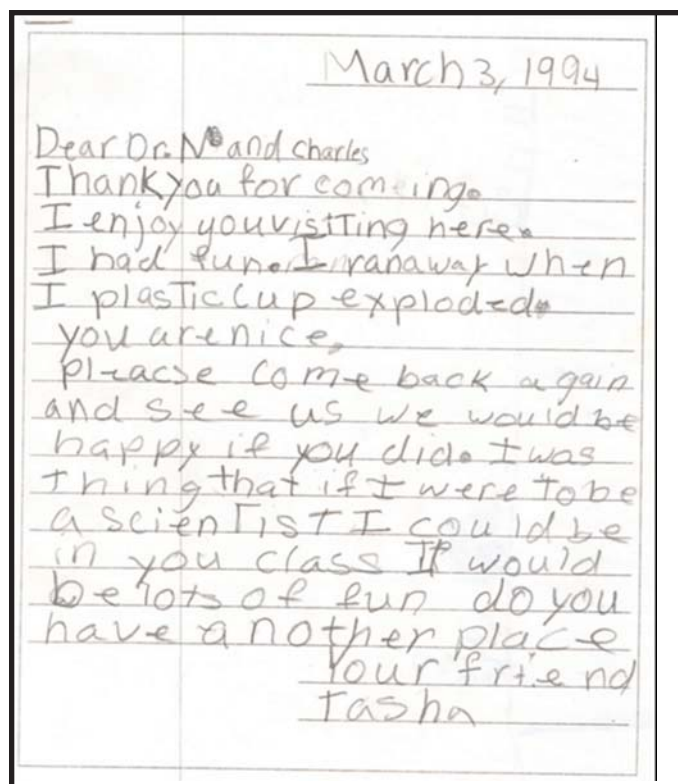 March 3, 1994
Dear Dr. N and Charles
Thank you for comeing.
I enjoy you visiTing here.
I had fun. I ranaway when
I plasTic cup exploded.
you are nice.
pleacse come back again
and see us we would be
happy if you did. I was
thing that if I were to be
a scienTist I could be
in you class It would
be lots of fun do you
have another place
Your friend
Tasha